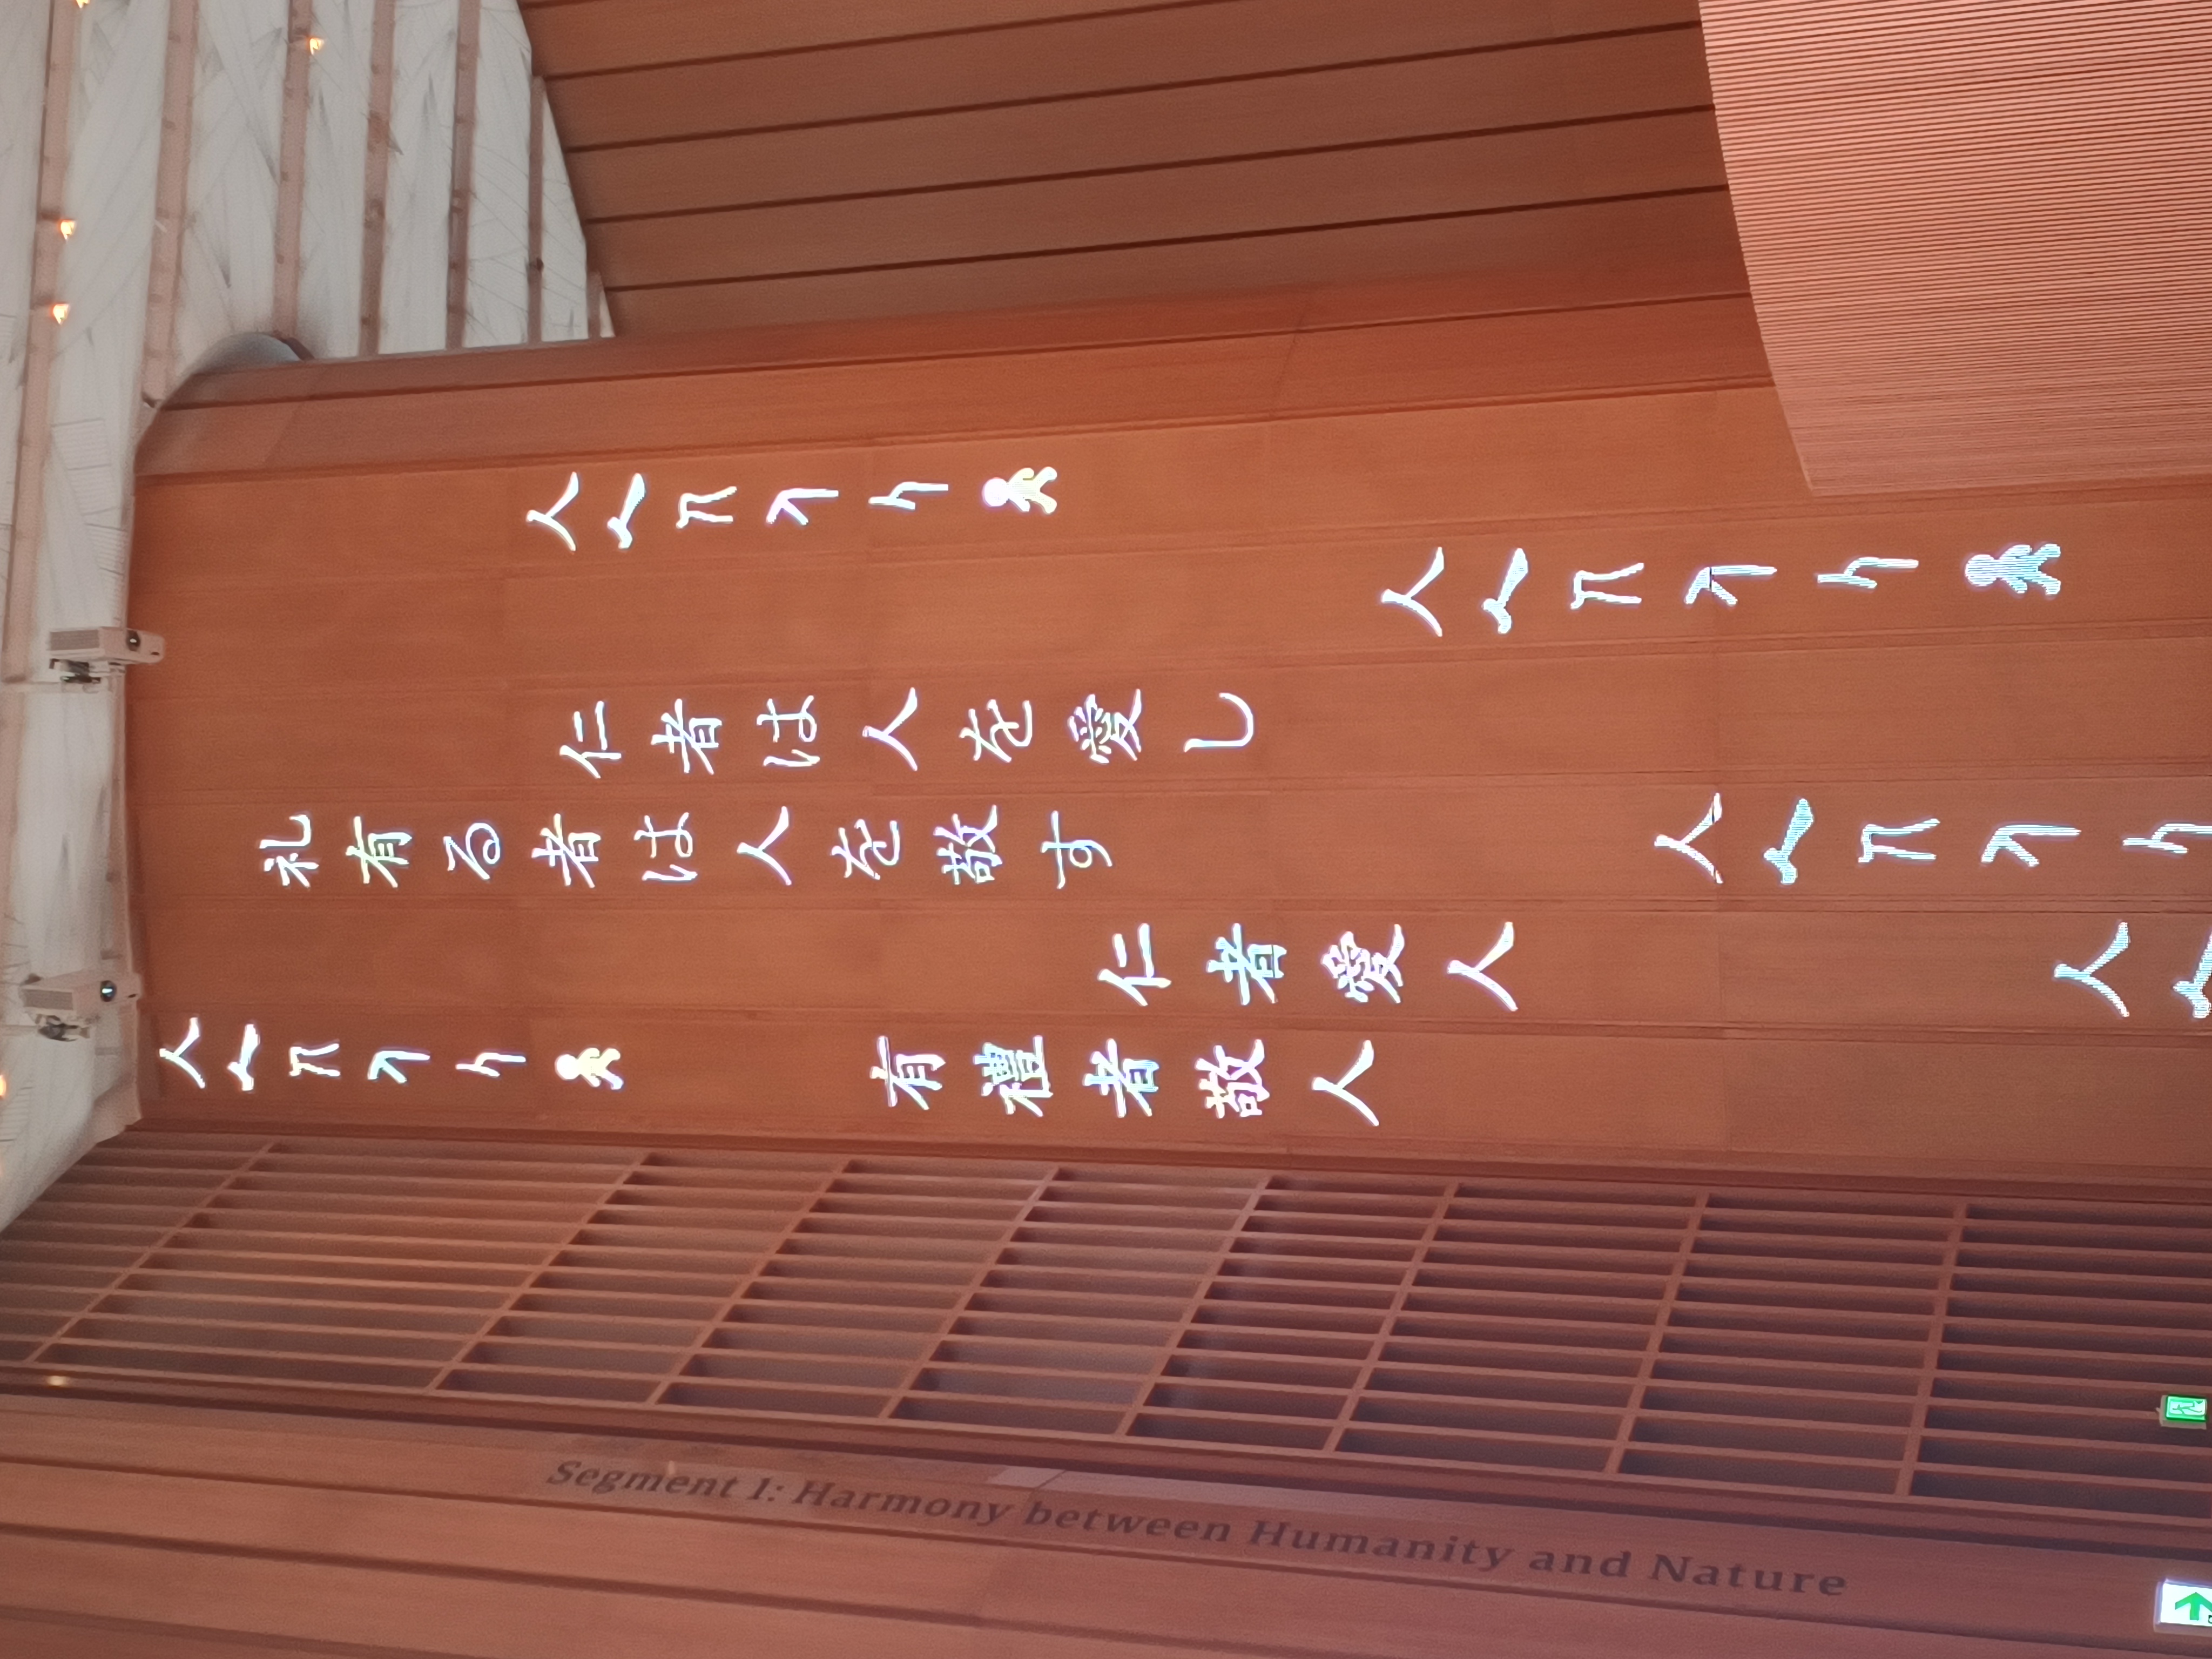 人
人
仁者は人を愛し
礼有る者は人を敬す
人
仁者愛人
人
人
有禮者敬人
Segment 1: Harmony between Humanity and Nature